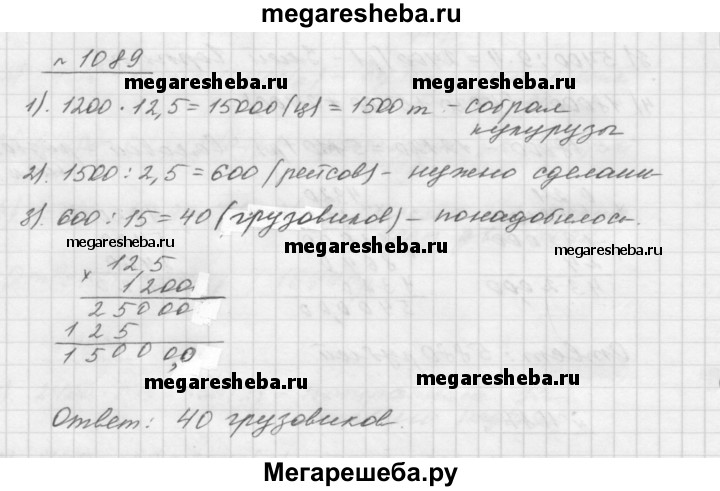 megaresheba.ru
№ 1089
megaresheba.ru megaresheba.ru
1). 1200 · 12,5 = 15000 (ц) = 1500 т - собрал
кукурузы
2). 1500 : 2,5 = 600 (рейсов) - нужно сделать
3). 600 : 15 = 40 (грузовиков) - понадобилось.
megaresheba.ru megaresheba.ru
12,5
× 1200
25000
125
15000,0
megaresheba.ru megaresheba.ru
Ответ: 40 грузовиков.
Мегарешеба.ру